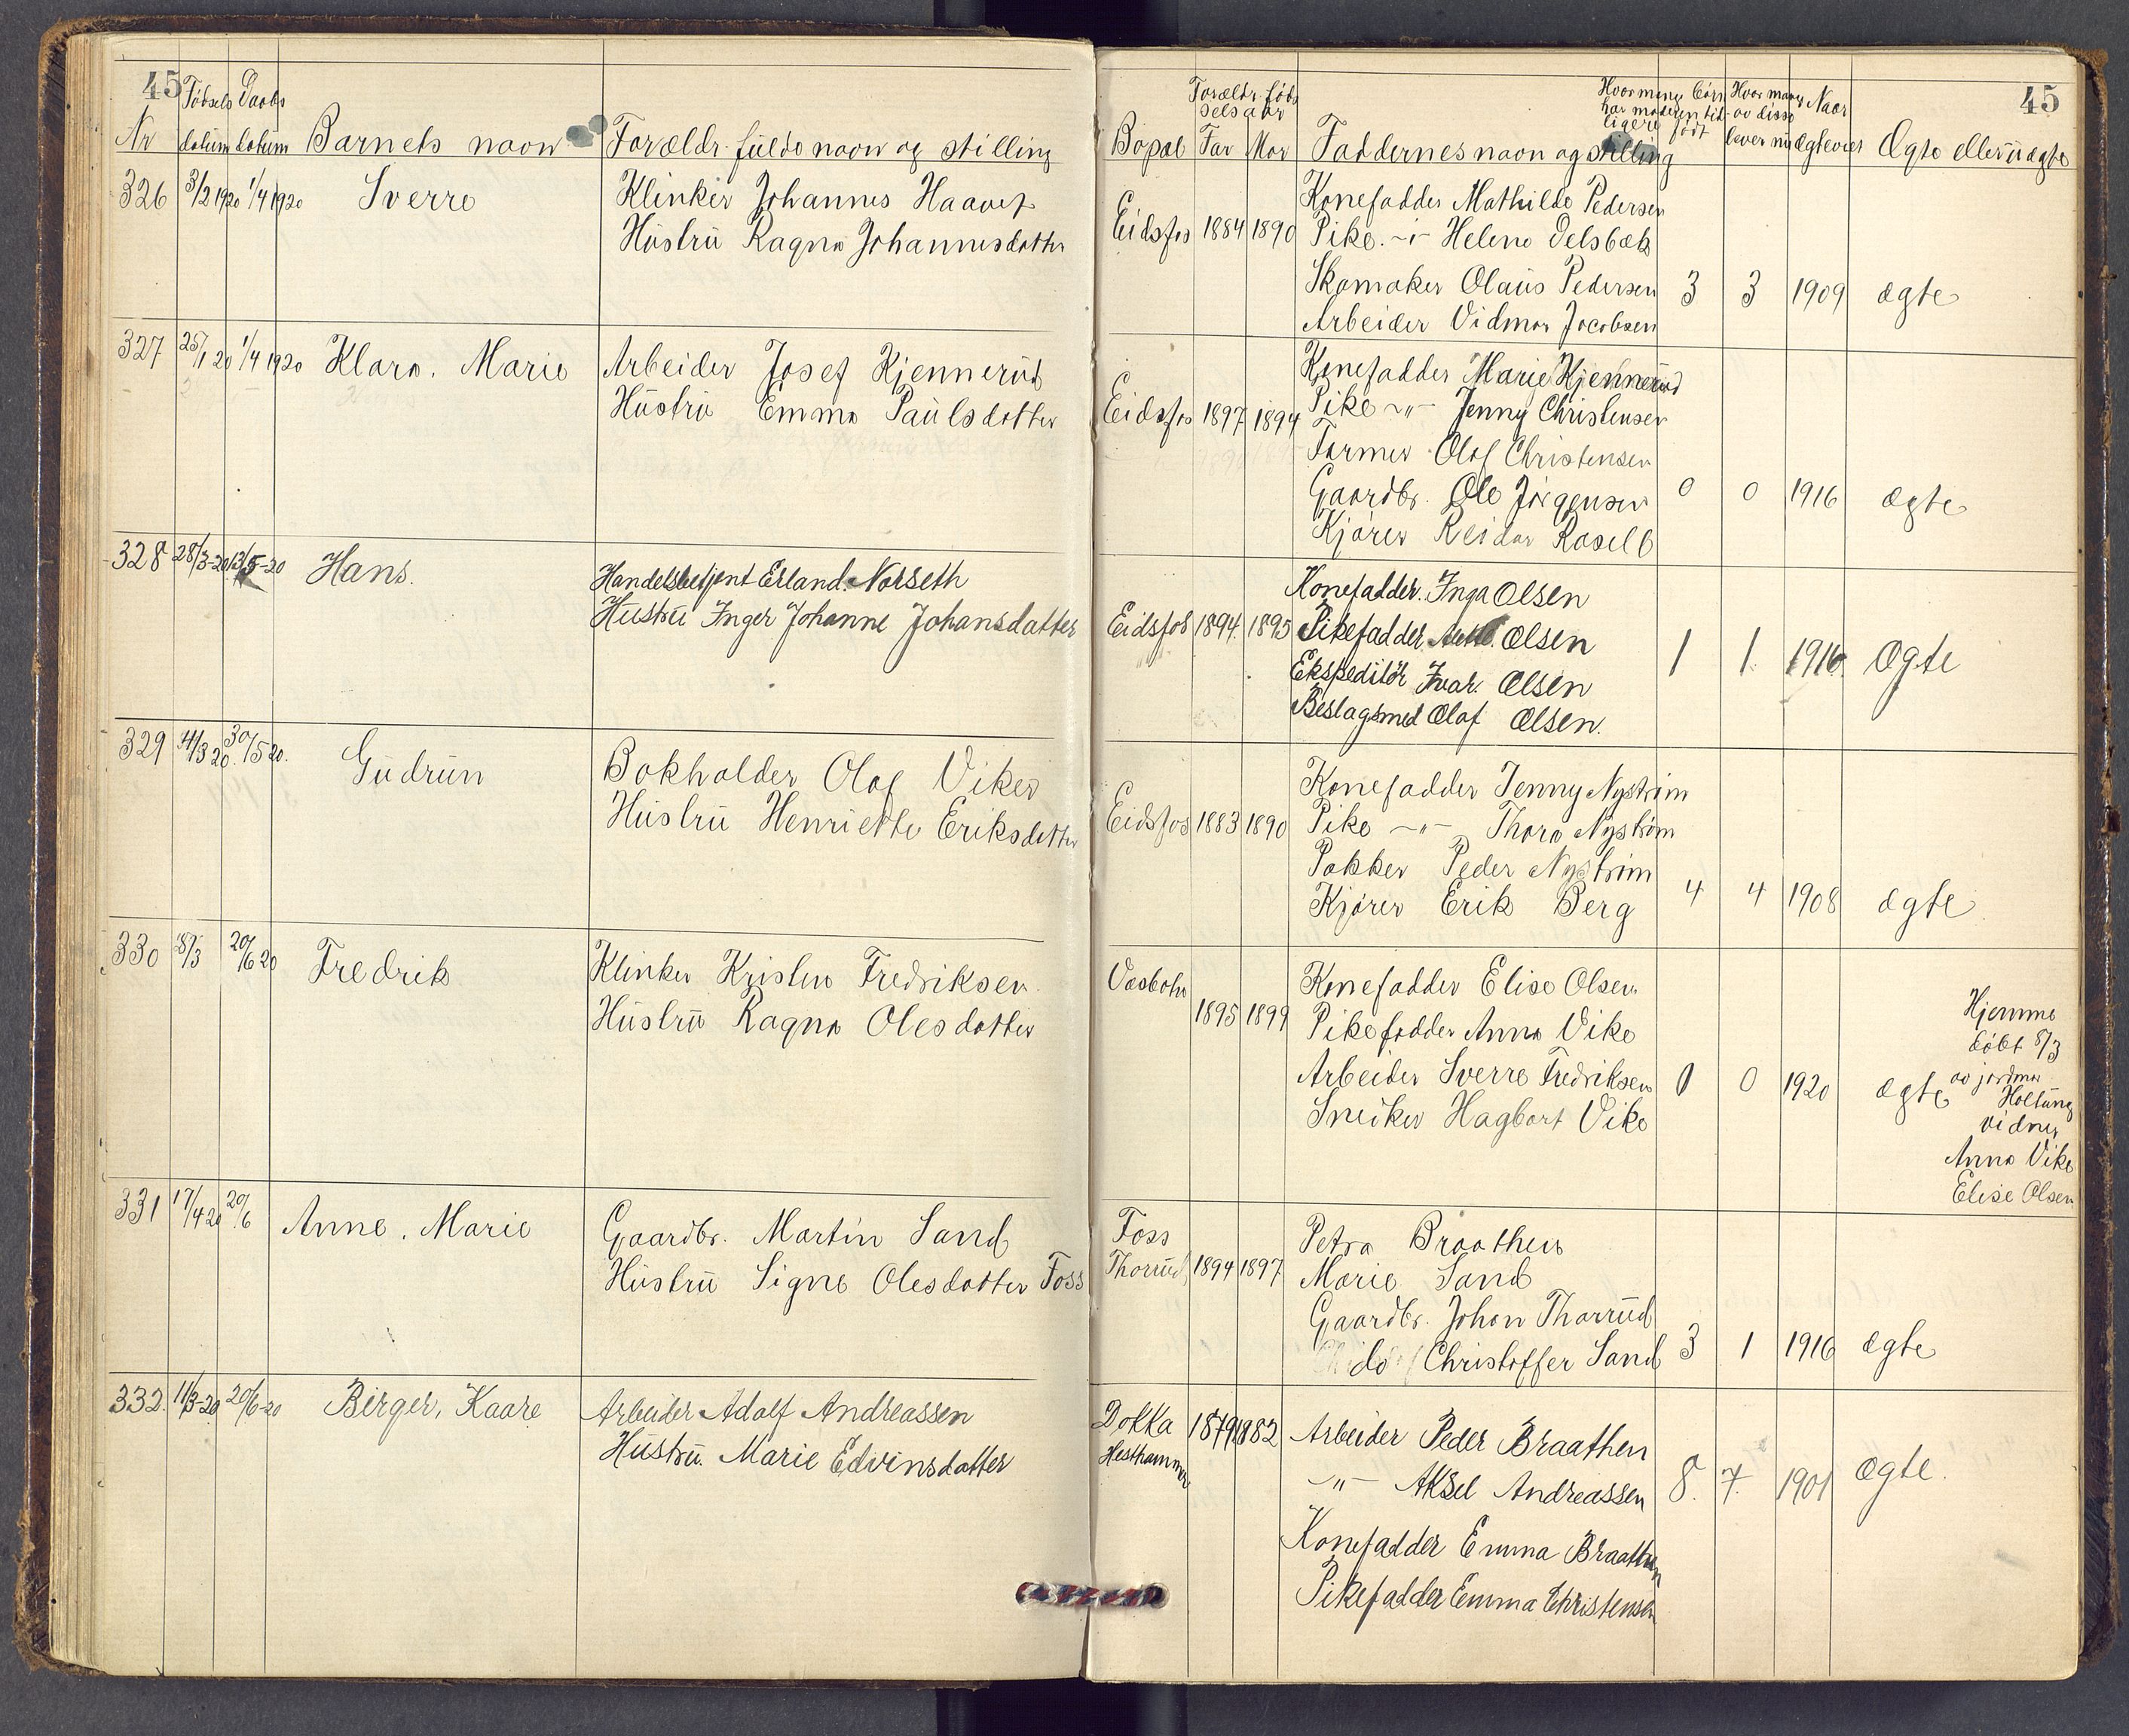 45
Fødsels Daabs
Nr datum datum Barnets navn Forældr. fulde navn og stilling
326 3/2 1920 1/4 1920 Sverre Klinker Johannes Haavet
Hustru Ragna Johannesdatter
327 25/1 20 1/4 1920 Klara. Marie Arbeider Josef Kjennerud
Hustru Emma Paulsdatter
328 28/3-20 13/5-20 Hans. Handelsbetjent Erland. Norseth
Hustru Inger Johanne Johansdatter
329 4/3 20. 30/5 20. Gudrun Bokholder Olaf Viker
Hustru Henriette Eriksdatter
330 8/3 20/6 20 Fredrik Klinker Kristen Fredriksen
Hustru Ragna Olesdatter
331 17/4 20 20/6 Anne. Marie Gaardbr. Martin Sand
Hustru Signe Olesdatter Foss
332. 11/3-20 20/6-20 Birger, Kaare Arbeider Adolf Andreassen
Hustru. Marie Edvinsdatter
45
Forældr. føds
selsaar
Hvormange børn
har moderen tid-
ligere født
Hvor mang
av disse
lever nu
Naar
ægteviet
Bopæl Far Mor Faddernes navn og stilling Ægte eller uægte
Konefadder Mathilde Pedersen
Eidsfos 1884 1890 Pike -"- Helene Delsbæk
Skomaker Olaus Pedersen 3 3 1909 ægte
Arbeider Vidmar Jacobsen
Konefadder Marie Kjennerud
Eidsfos 1897 1894 Pike -"- Jenny Christensen
Farmer Olaf Christensen
Gaardbr. Ole Jørgensen 0 0 1916 ægte
Kjører Reidar
Konefadder. Inga Olsen
Eidsfos 1894. 1895 Pikefadder Olsen
Ekspeditør Ivar. Olsen 1 1. 1916. Ægte
Beslagsmed Olaf Olsen.
Konefadder Jenny Nystrøm
Eidsfos 1883 1890 Pike -"- Thora Nystrøm
Pakker Peder Nystrøm
Kjører Erik Berg 4 4 1908 ægte
Konefadder Elise Olsen
1895 1899 Pikefadder Anna Vike
Arbeider Sverre Fredriksen 0 0 1920 ægte
Sneiker Hagbart Vike
Hjemme
døbt 8/3
av jordmor
Holtung
vidner
Anna Vike
Elise Olsen
Foss Petra Braathen
Thorrud 1894 1897 Marie Sand
Gaardbr. Johan Thorrud
do Christoffer Sand 3 1 1916 ægte
Dokka 1879 1882 Arbeider Peder Braathen
Hesthammer
-"- Aksel Andreassen 8. 7. 1901 Ægte.
Konefadder Emma Braathen
Pikefadder Emma Christensen